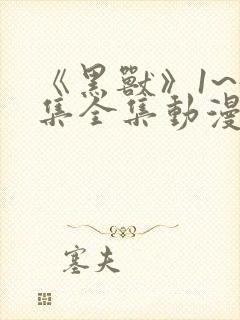 《黑獸》1~
集全集動漫
塞夫